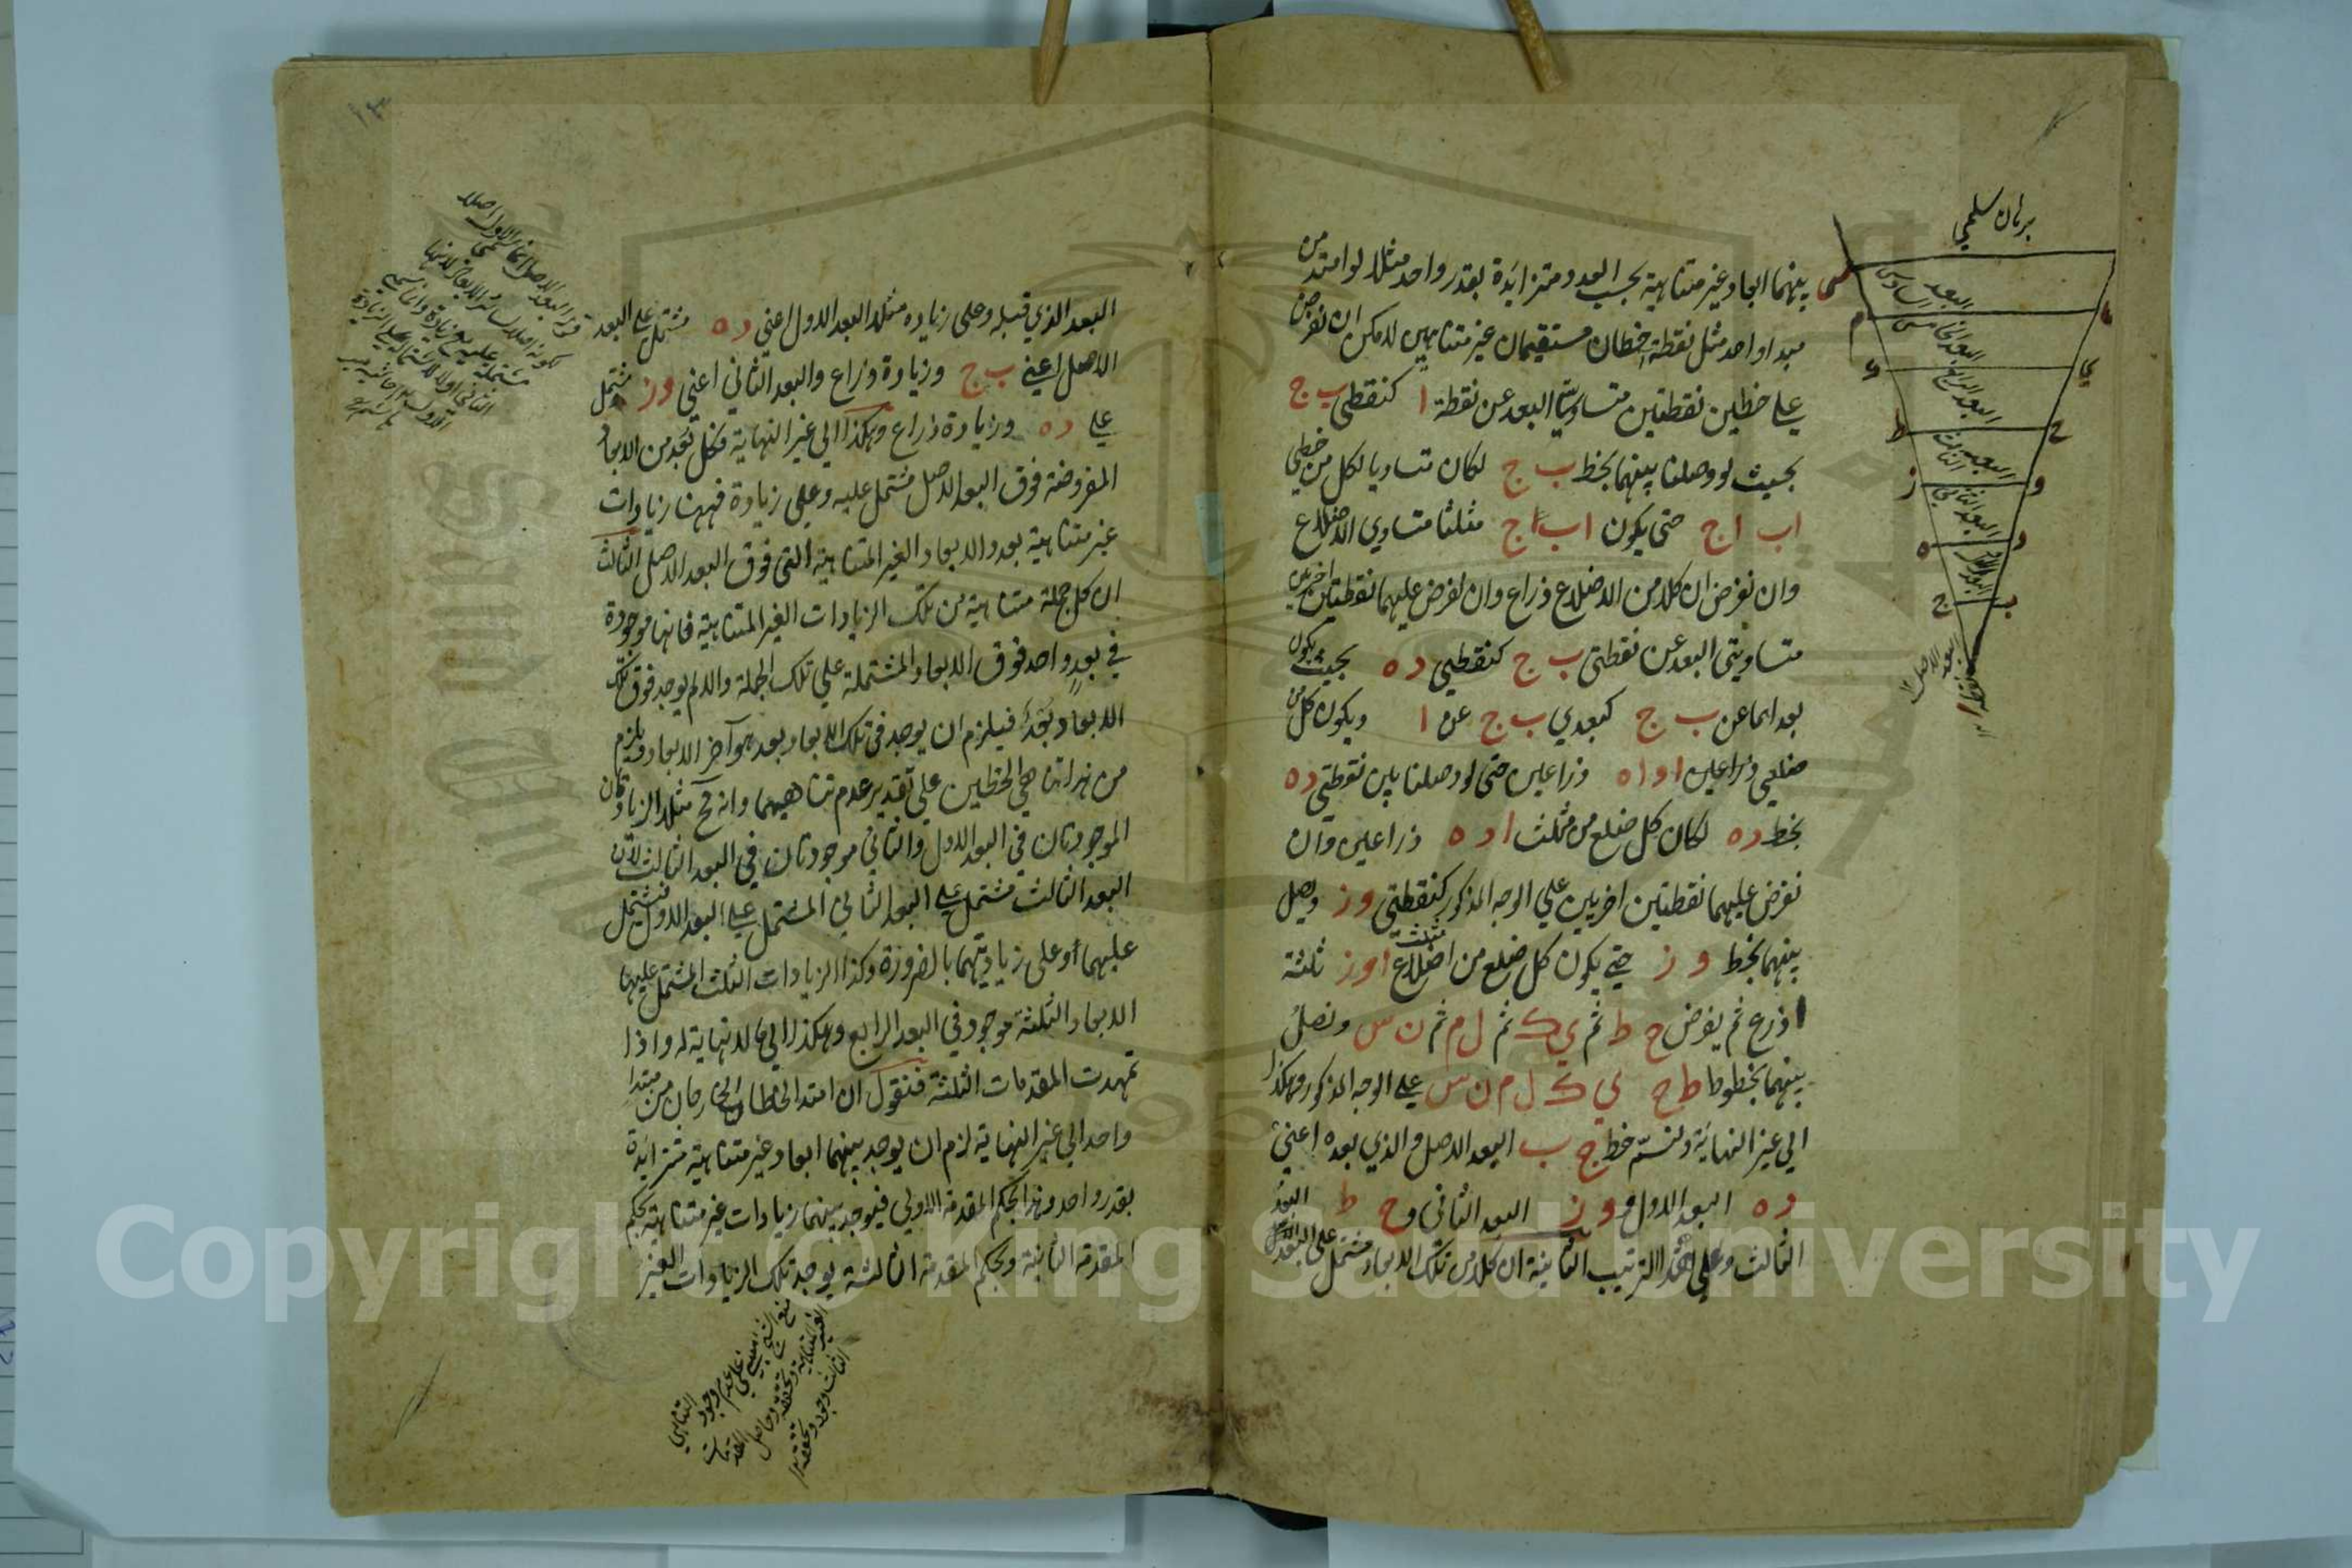 برهان سلمي
بينهما ابعاد غير متناهية بحسب العدد ومتزايدة بقدر واحد مثلا لو امتد من
مبدا واحد مثل نقطة ا خطان مستقيمان غير متناهيين لامكن ان نفرض
على خطين نقطتين متساويتي البعد عن نقطة ا كنقطتي ب ج
بحيث لو وصلنا بينهما بخط ب ج لكان متساويا لكل من خطي
اب اج حتى يكون اب اج مثلثا متساوي الاضلاع
وان نفرض ان كلا من الاضلاع ذراع وان نفرض عليهما نقطتان اخريين
متساويتي البعد عن نقطتي ب ج كنقطتي د ه بحيث يكون
بعداهما عن ب ج كبعدي ب ج عن ا ويكون كل من
ضلعي ذراعين ا د ا ه ذراعين حتى لو وصلنا بين نقطتي د ه
بخط د ه لكان كل ضلع من مثلث ا د ه ذراعين وان
نفرض عليهما نقطتين اخريين على الوجه المذكور كنقطتي و ز ونصل
بينهما بخط و ز حتى يكون كل ضلع من اضلاع مثلث ا و ز ثلثة
اذرع ثم يفرض ح ط ثم ي ك ثم ل م ثم ن س ونصل
بينهما بخطوط ط ح ي ك ل م ن س على الوجه المذكور وهكذا
الى غير النهاية ولنسم خط ج ب البعد الاصل والذي بعده اعني
د ه البعد الاول و و ز البعد الثاني و ح ط البعد
الثالث وعلى هذا الترتيب الثانية ان كلا من تلك الابعاد مشتمل على البعد
البعد السادس
البعد الخامس
البعد الرابع
البعد الثالث
البعد الثاني
البعد الاول
البعد الاصل
س
م
ك
ي
ط
ح
ز
و
ه
د
ج
ب
البعد الذي قبله وعلى زيادة مثلا البعد الاول اعني د ه مشتمل على البعد
الاصل اعني ب ج وزيادة ذراع والبعد الثاني اعني و ز مشتمل
على د ه وزيادة ذراع وهكذا الى غير النهاية فكل بعد من الابعاد
المفروضة فوق البعد الاصل مشتمل عليه وعلى زيادة فههنا زيادات
غير متناهية بعدد الابعاد الغير المتناهية التي فوق البعد الاصل الثالث
ان كل جملة متناهية من تلك الزيادات الغير المتناهية فانها موجودة
في بعد واحد فوق الابعاد المشتملة على تلك الجملة والا لم يوجد فوق تلك
الابعاد بعد فيلزم ان يوجد في تلك الابعاد بعد هو آخر الابعاد ويلزم
من هذا تناهي الخطين على تقدير عدم تناهيهما وانه مح مثلا الزيادتان
الموجودتان في البعد الاول والثاني موجودتان في البعد الثالث لان
البعد الثالث مشتمل على البعد الثاني المشتمل على البعد الاول فيشتمل
عليهما وعلى زيادتيهما بالضرورة وكذا الزيادات الثلث المشتمل عليها
الابعاد الثلثة موجود في البعد الرابع وهكذا الى ما لا نهاية له واذا
تمهدت المقدمات الثلثة فنقول ان امتد الخطان الخارجان من مبتدا
واحد الى غير النهاية لزم ان يوجد بينهما ابعاد غير متناهية متزايدة
بقدر واحد وهذا بحكم المقدمة الاولى فيوجد بينهما زيادات غير متناهية بحكم
المقدمة الثانية وبحكم المقدمة الثالثة يوجد تلك الزيادات الغير
Copyright © King Saud University